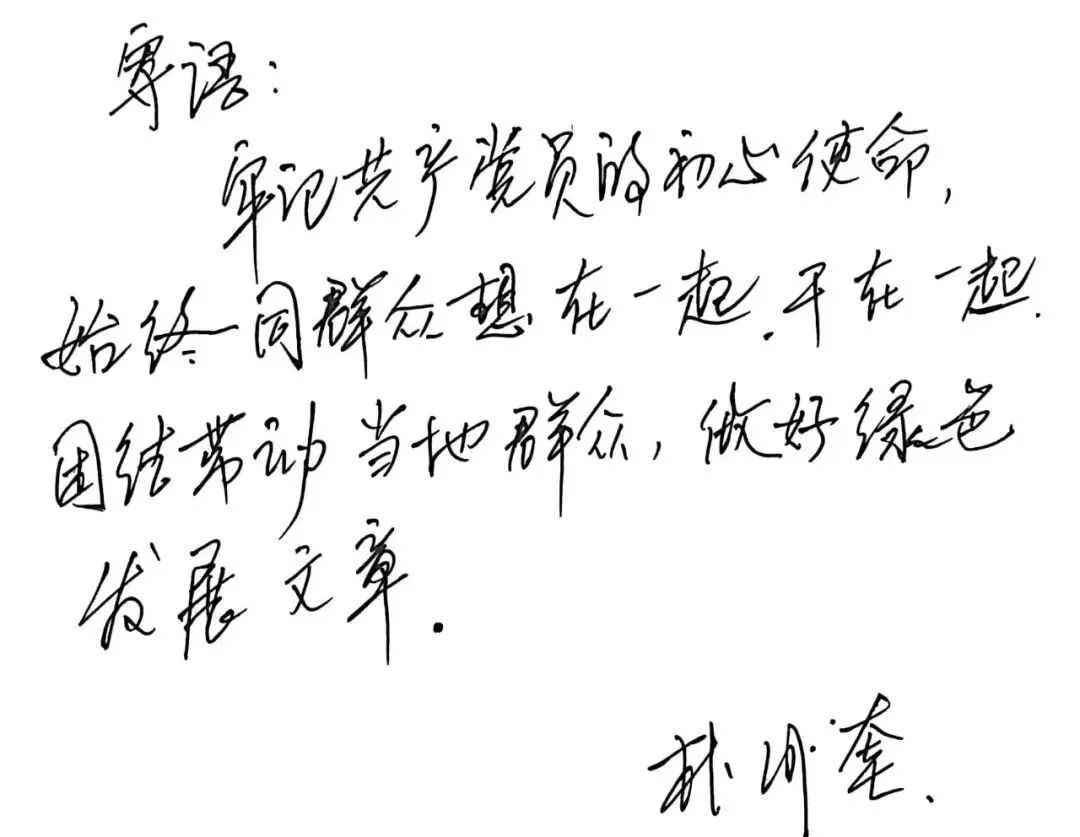 寄语：
牢记共产党员的初心使命，
始终同群众想在一起.干在一起.
团结带动当地群众，做好绿色
发展文章.
林